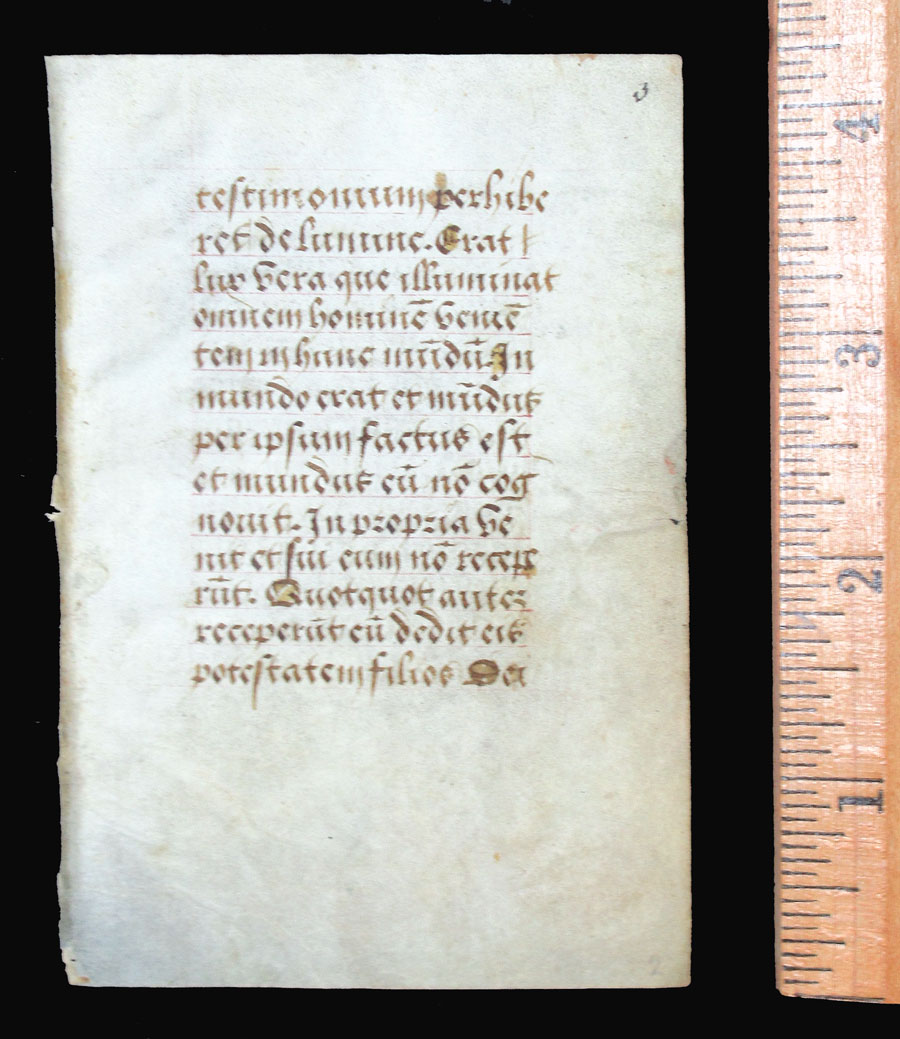 3
testimonium perhibe
ret de lumine. Erat
lux vera que illuminat
omnem hominē veniē
tem in hunc mūdū. In
mundo erat et mūdus
per ipsum factus est
et mundus eū nō cog
nouit. In propria ve
nit et sui eum nō recepe
rūt. Quotquot autez
receperūt eū dedit eis
potestatem filios Dei
2
4
3
2
1